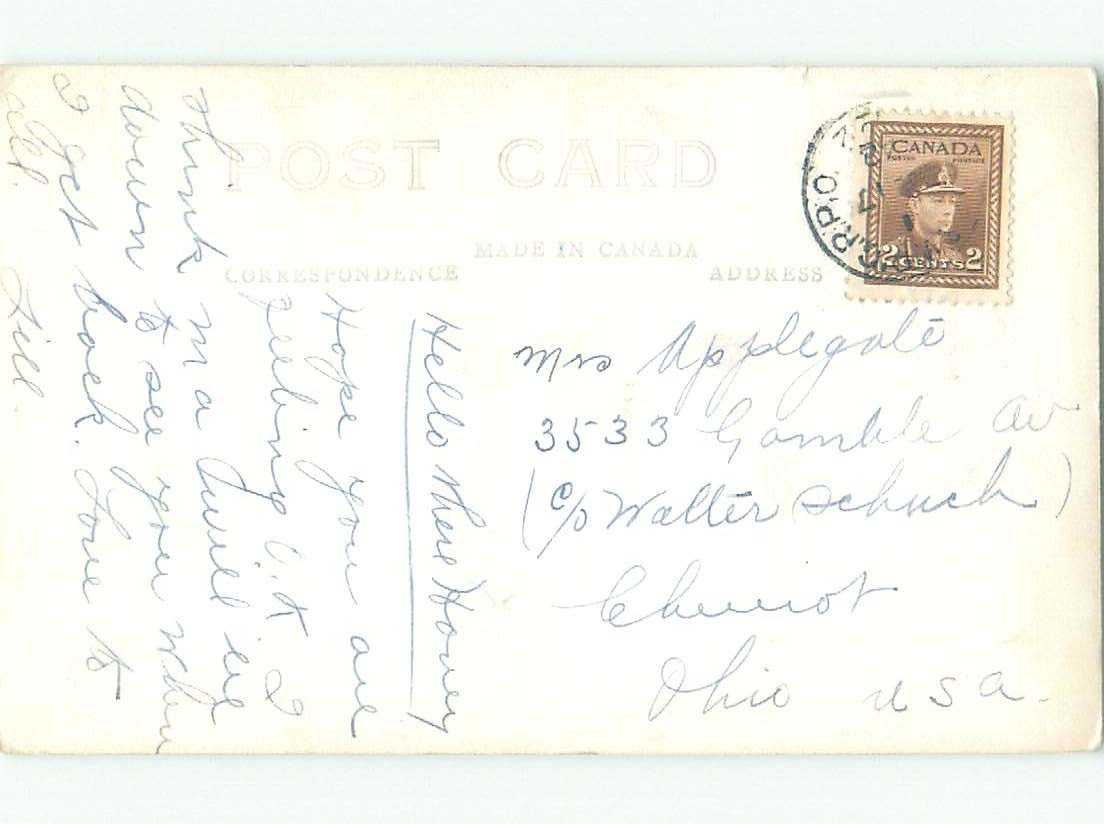 POST CARD
MADE IN CANADA
CORRESPONDENCE
ADDRESS
CANADA
POSTES POSTAGE
2 CENTS 2
R.P.O.
Mrs Applegate
3533 Gamble Av
(c/o Walter Schuch)
Cheviot
Ohio USA.
Hello there Honey
Hope you are
feeling O.K I
think ma & will be
down to see you when
I get back. Love to
all.
Lill.